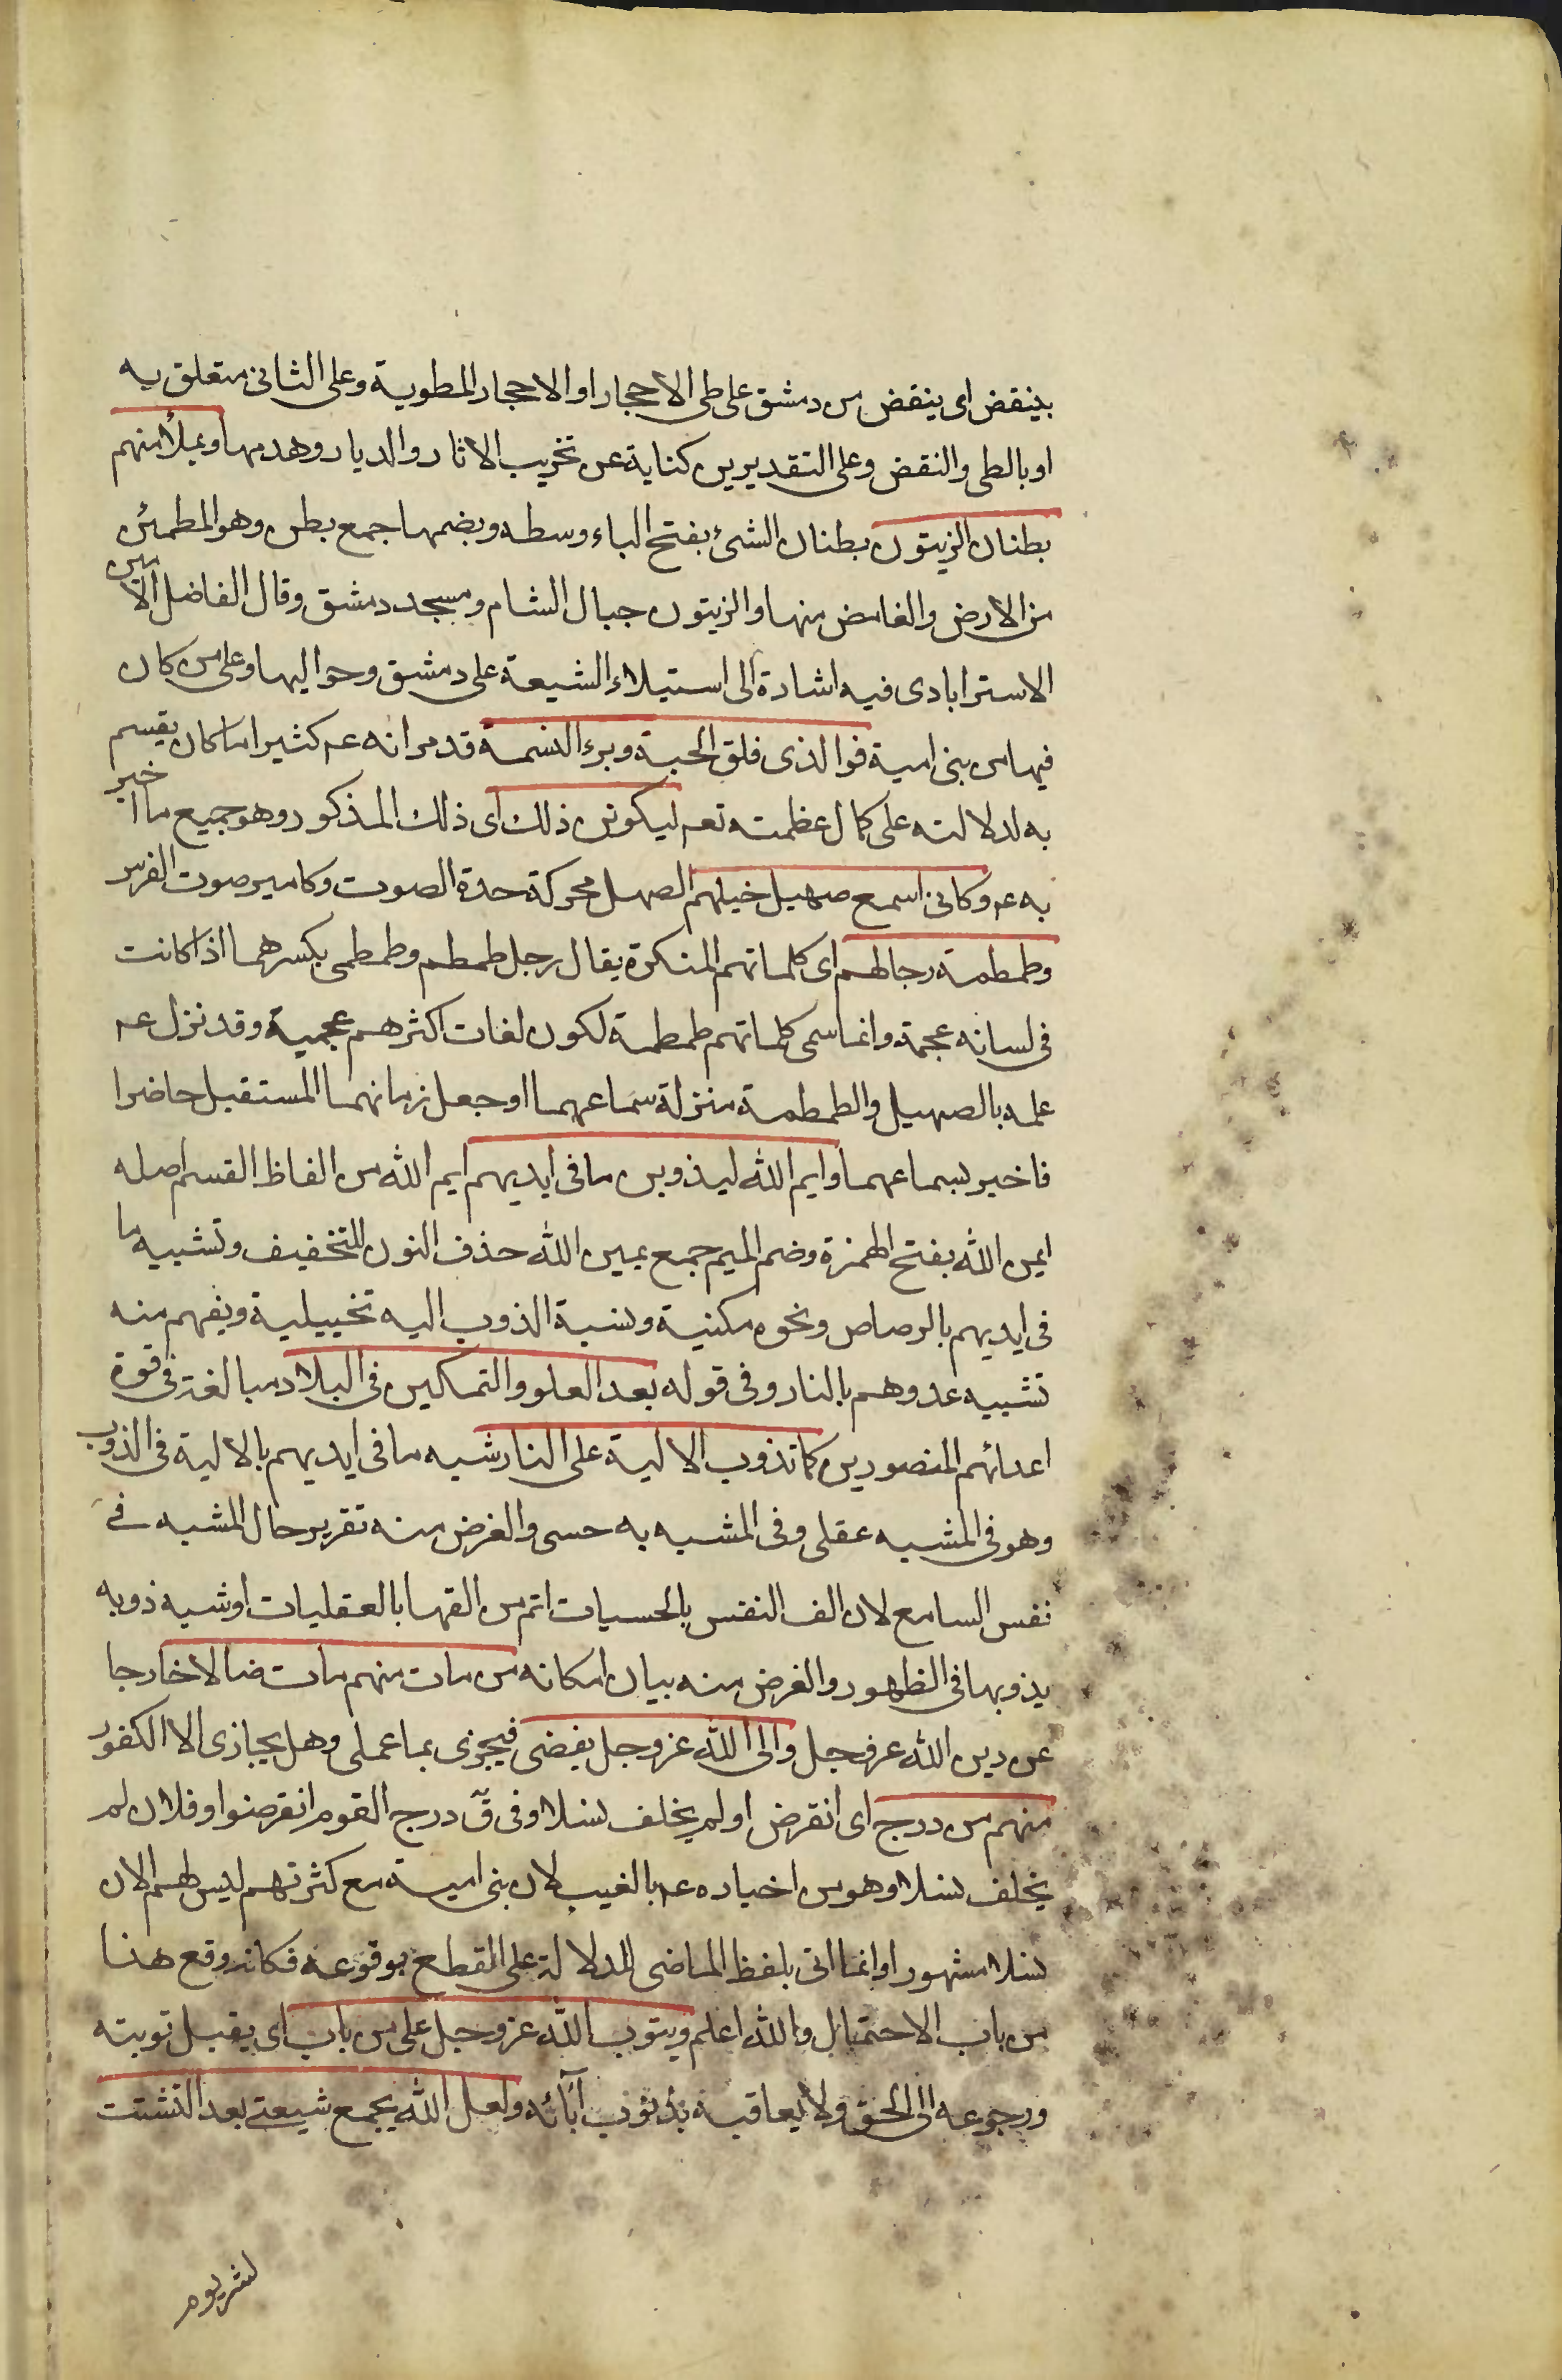 بينقض اى ينقض من دمشق على طى الاحجار او الاحجار المطوية وعلى الثانى متعلق به
او بالطى والنقض وعلى التقديرين كناية عن تخريب الاثار والديار وهدمها ويملأ منهم
بطنان الزيتون بطنان الشىء بفتح الباء وسطه وبضمها جمع بطن وهو المطمئن
من الارض والغامض منها والزيتون جبال الشام ومسجد دمشق وقال الفاضل الامين
الاسترابادى فيه اشارة الى استيلاء الشيعة على دمشق وحواليها وعلى من كان
فيها من بنى امية فوالذى فلق الحبة وبرء النسمة قد مر انه عم كثيرا ما كان يقسم
به لدلالته على كمال عظمته تعم ليكونن ذلك اى ذلك المذكور وهو جميع ما اخبر
به عم وكانى اسمع صهيل خيلهم الصهل محركة حدة الصوت وكامير صوت الفرس
وطمطمة رجالهم اى كلماتهم المنكرة يقال رجل طمطم وطمطمى بكسرهما اذا كانت
فى لسانه عجمة وانما سمى كلماتهم طمطمة لكون لغات اكثرهم عجمية وقد نزل عم
علمه بالصهيل والطمطمة منزلة سماعهما او جعل زمانهما المستقبل حاضرا
فاخبر بسماعهما وايم الله ليذوبن ما فى ايديهم ايم الله من الفاظ القسم اصله
ايمن الله بفتح الهمزة وضم الميم جمع يمين الله حذف النون للتخفيف وتشبيه ما
فى ايديهم بالرصاص ونحوه مكنية ونسبة الذوب اليه تخييلية ويفهم منه
تشبيه عدوهم بالنار وفى قوله بعد العلو والتمكين فى البلاد مبالغة فى قوة
اعدائهم المنصورين كما تذوب الالية على النار شبه ما فى ايديهم بالالية فى الذوب
وهو فى المشبه عقلى وفى المشبه به حسى والغرض منه تقرير حال المشبه فى
نفس السامع لان الف النفس بالحسيات اتم من الفها بالعقليات او شبه ذوبه
بذوبها فى الظهور والغرض منه بيان امكانه من مات منهم مات ضالا خارجا
عن دين الله عز وجل والى الله عز وجل يفضى فيجزى بما عملى وهل يجازى الا الكفور
منهم من درج اى انقرض او لم يخلف نسلا وفى ق درج القوم انقرضوا وفلان لم
يخلف نسلا وهو من اخباره عم بالغيب لان بنى امية مع كثرتهم ليس لهم الان
نسلا مشهورا وانما اتى بلفظ الماضى للدلالة على القطع بوقوعه فكانه وقع هذا
من باب الاحتمال والله اعلم ويتوب الله عز وجل على من باب اى يقبل توبته
ورجوعه الى الحق ولا يعاقبه بذنوب آبائه ولعل الله يجمع شيعتى بعد التشتت
لشر يوم